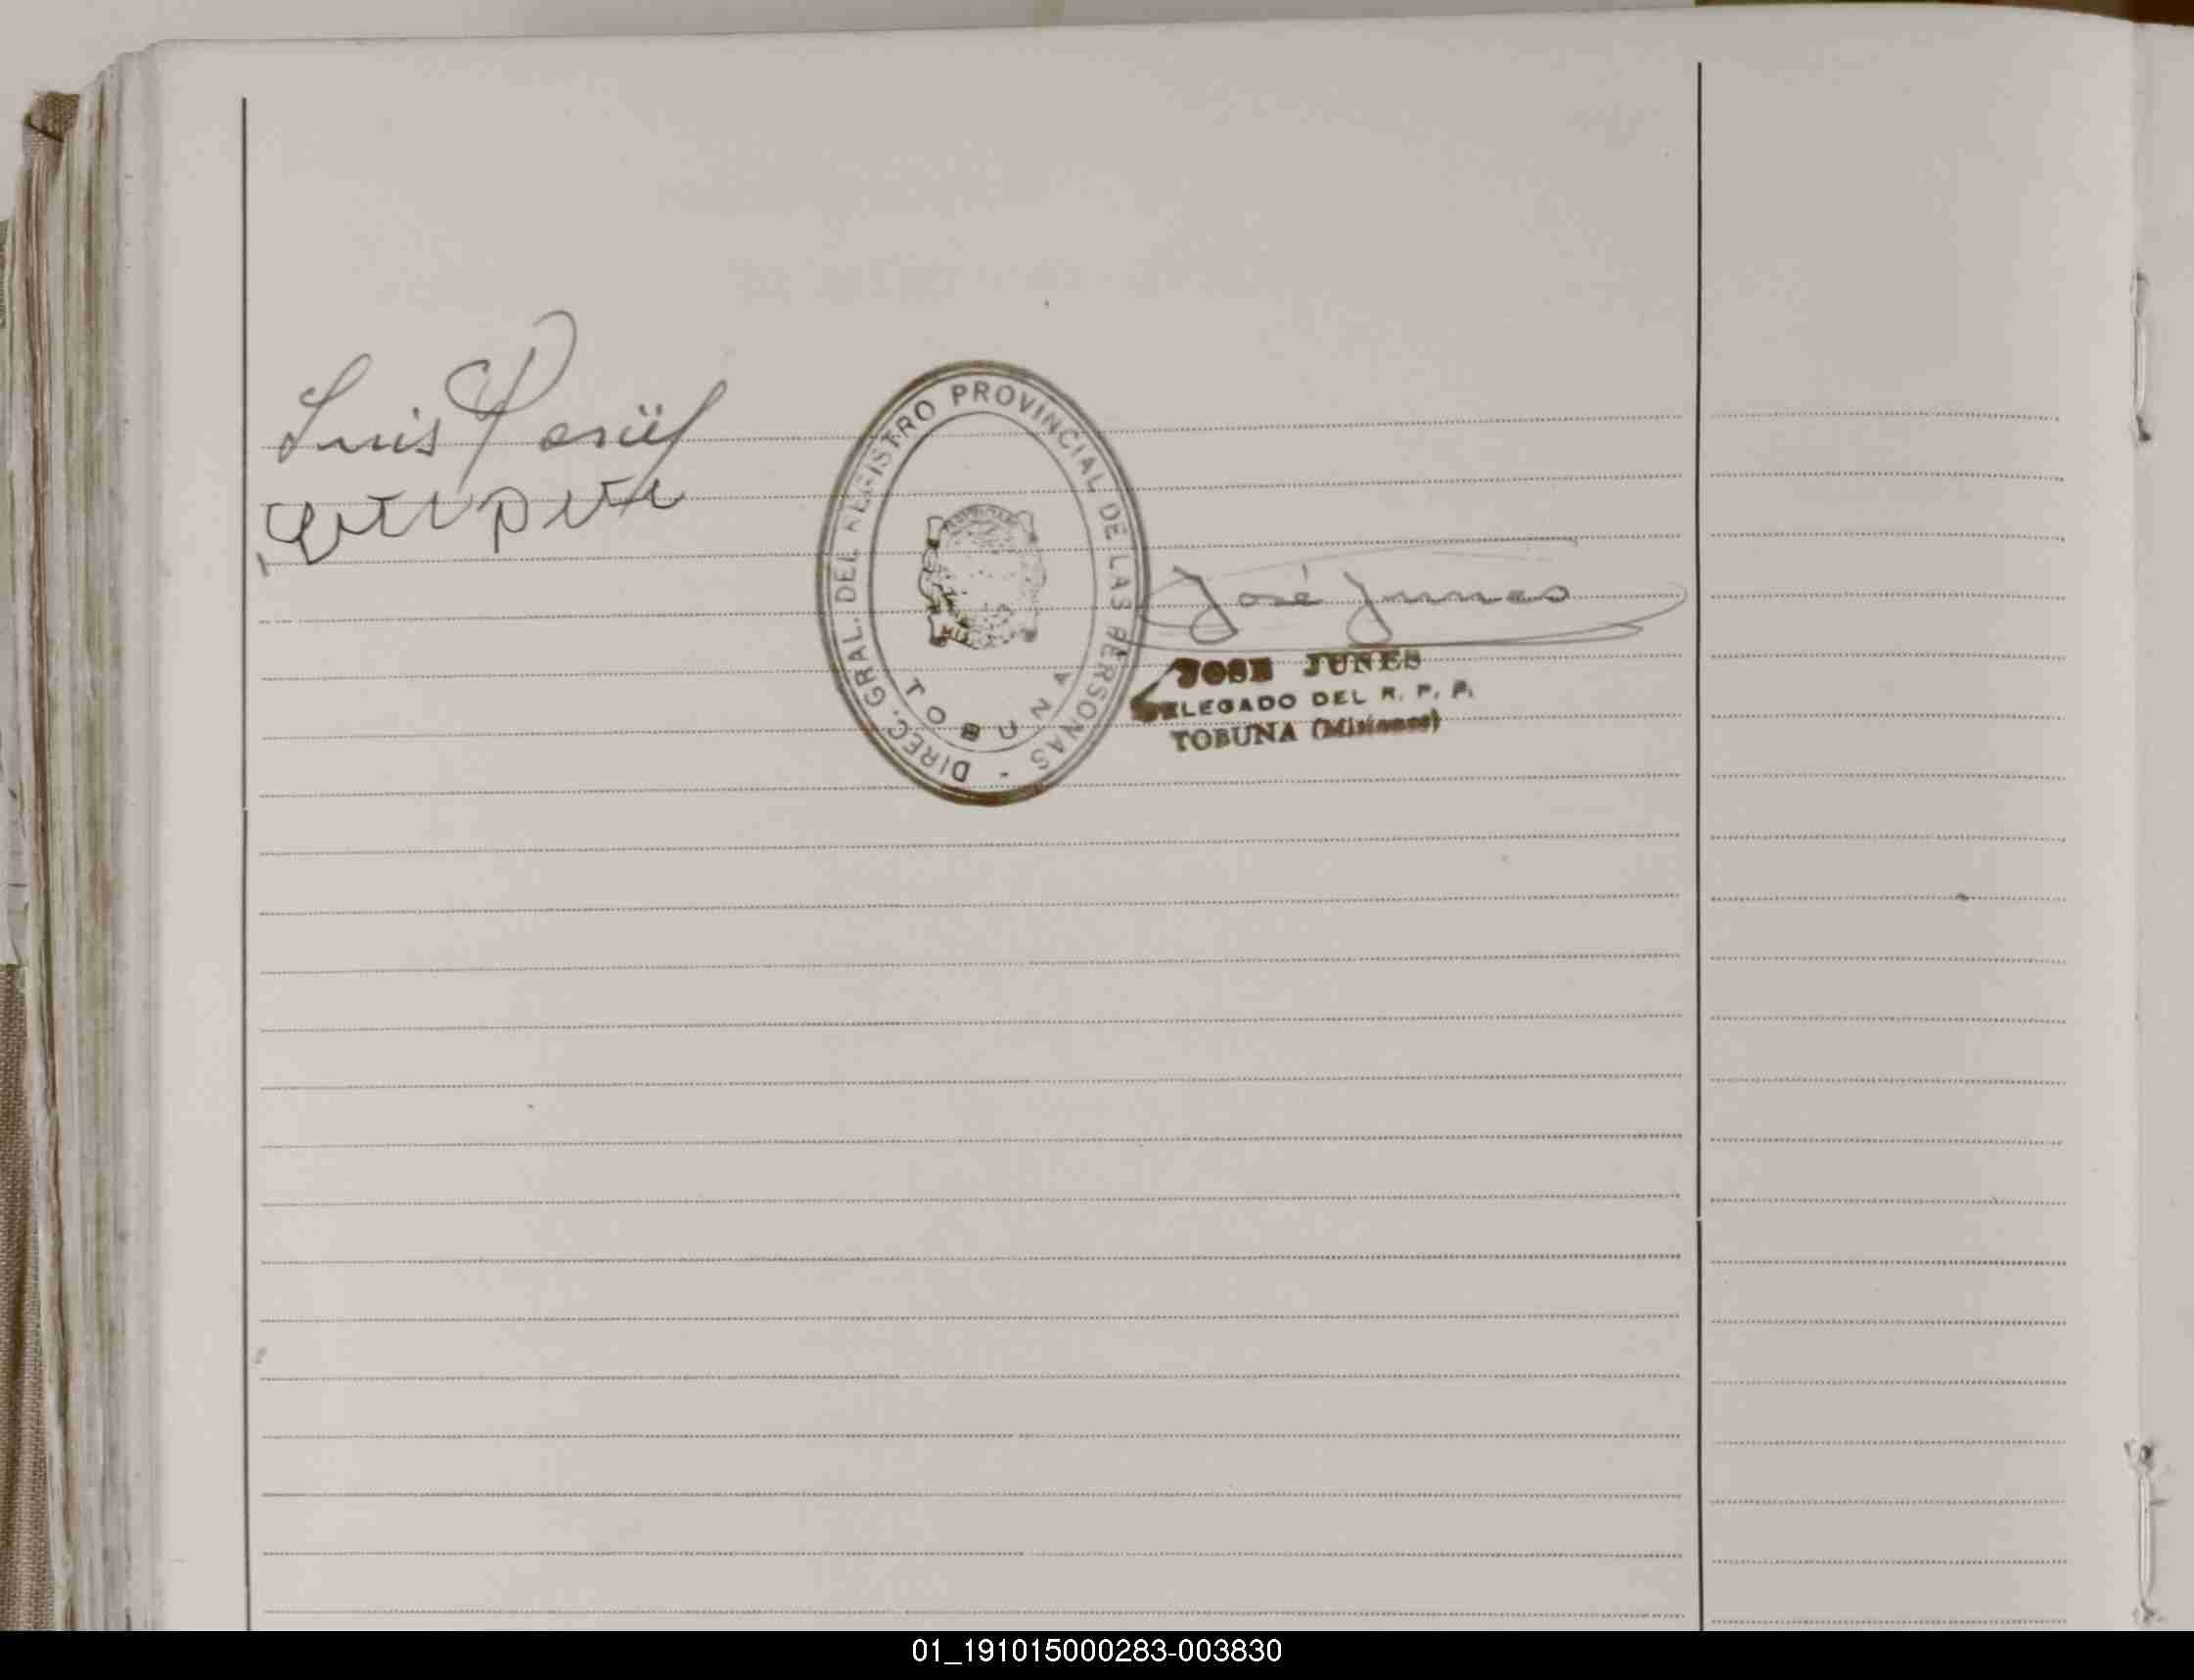 Luis
DIREC. GRAL. DEL REGISTRO PROVINCIAL DE LAS PERSONAS -
TOBUNA
José Junes
JOSE JUNES
DELEGADO DEL R. P. P.
TOBUNA (Misiones)
01_191015000283-003830